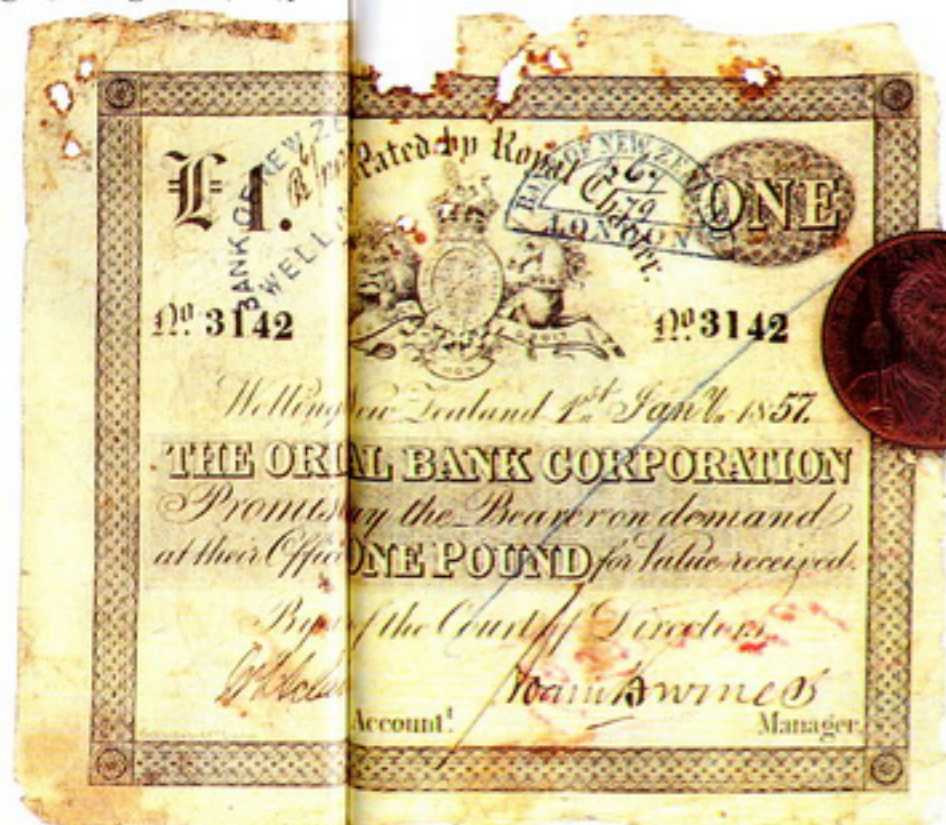 £1.
BANK OF NEW ZE
WELL
rated by Royal Charter.
BANK OF NEW ZE
LONDON
ONE
No. 3142
No. 3142
Welling ew Zealand 1st Jany. 1857.
THE ORI AL BANK CORPORATION
Promis ay the Bearer on demand
at their Offic ONE POUND for Value received.
By of the Court of Directors
Accountt.
Manager.